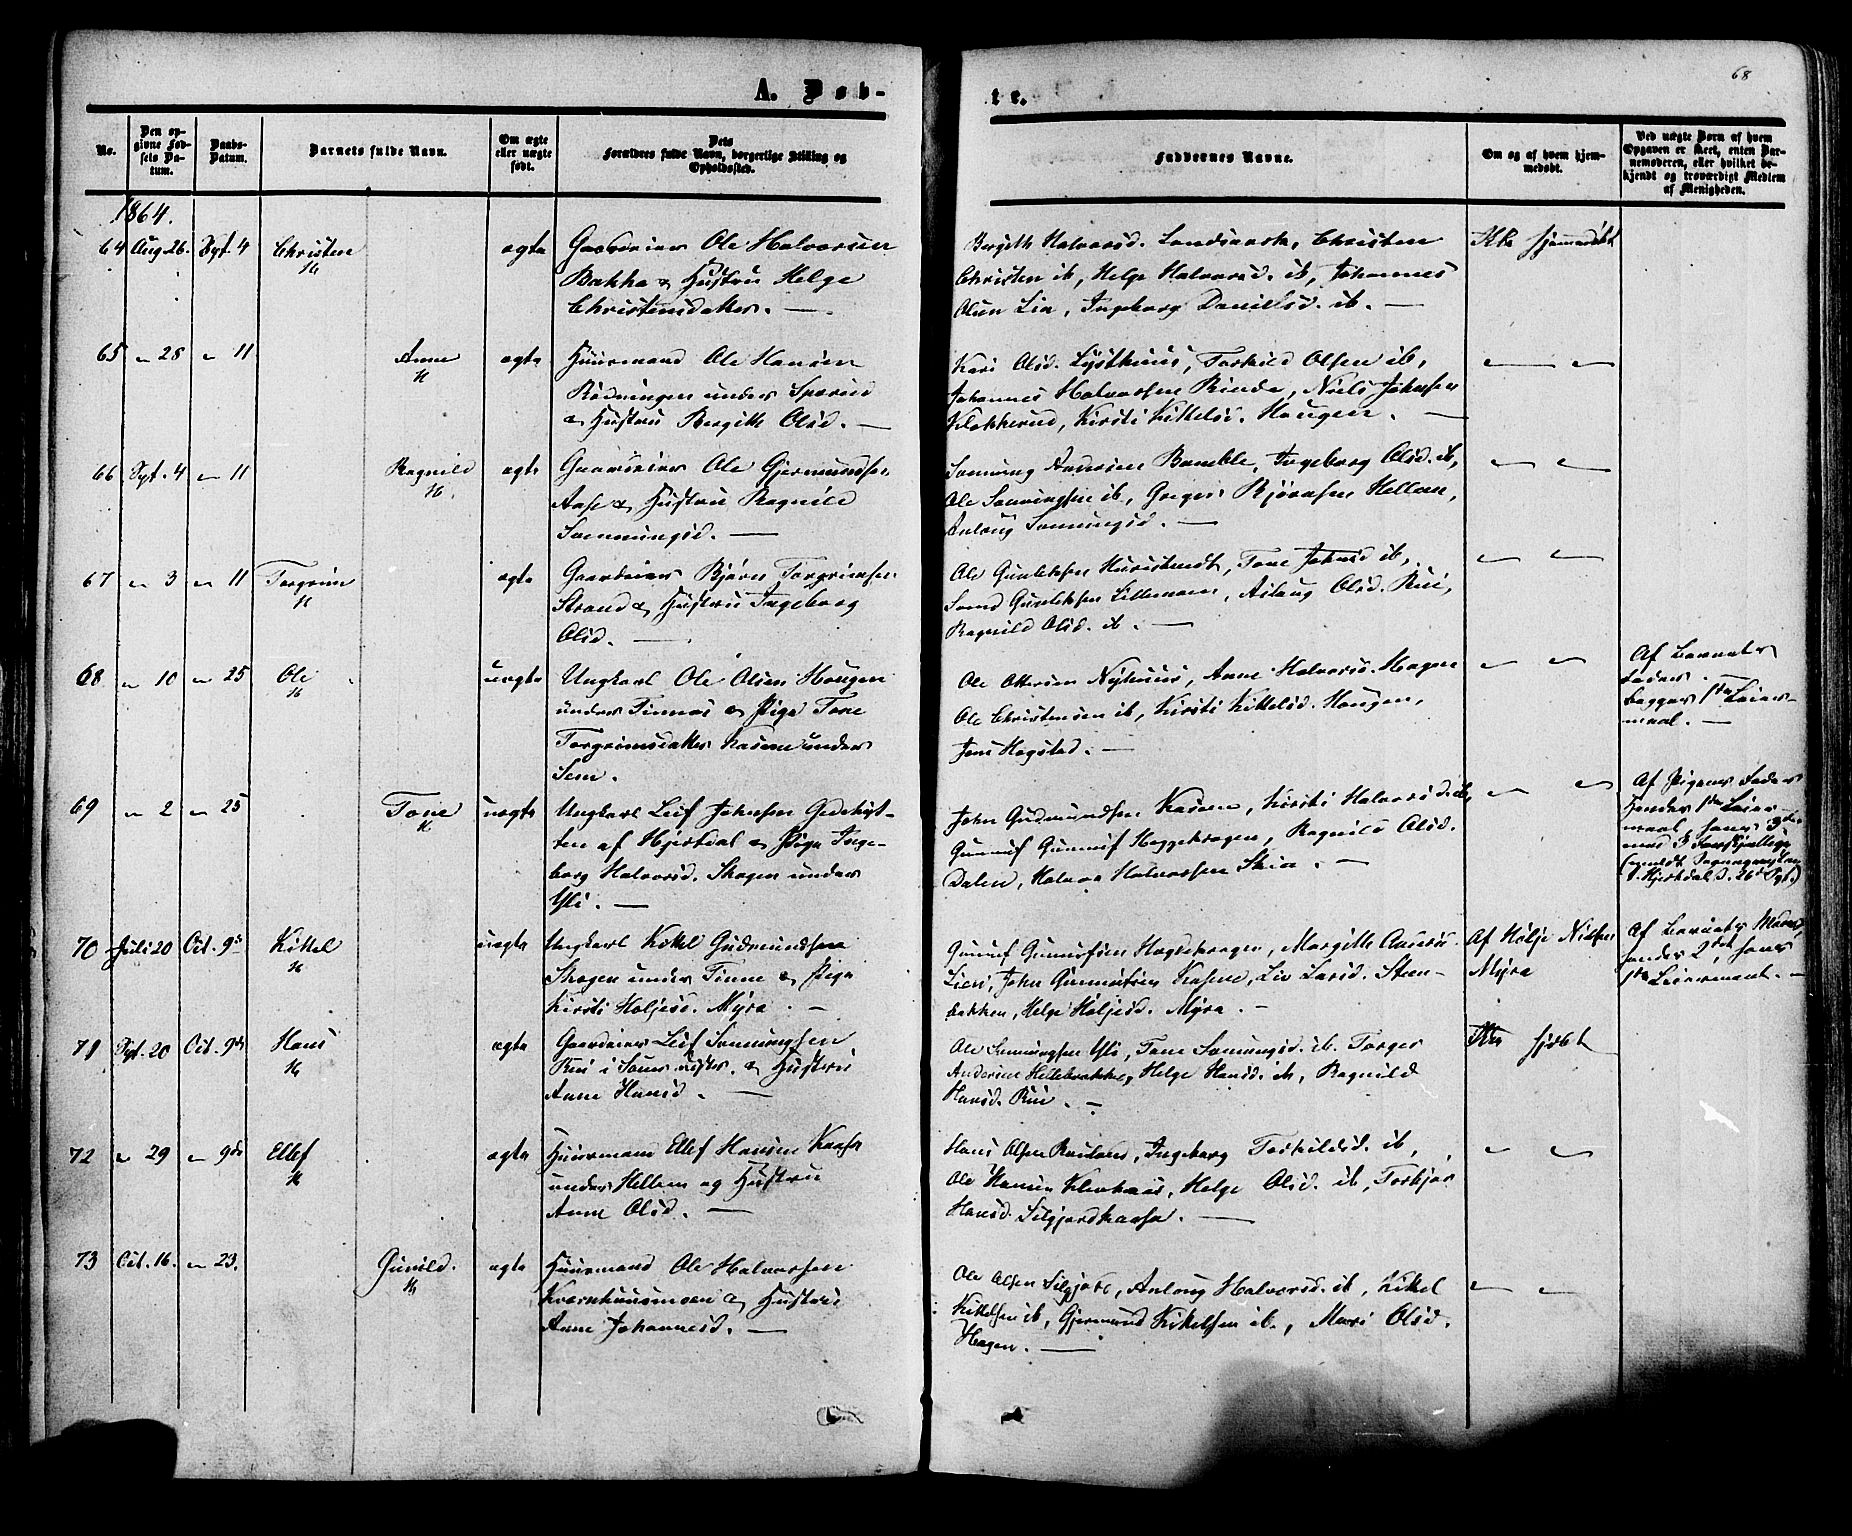 68
A. Døb-
te.
No.
Den opgivne Fødsels Datum.
Daabs-Datum.
Barnets fulde Navn.
Om ægte eller uægte født.
Dets Forældres fulde Navn, borgerlige Stilling og Opholdssted.
Faddernes Navne.
Om og af hvem hjemmedøbt.
Ved uægte Børn af hvem Opgaven er skeet, enten Barnemoderen, eller hvilket bekjendt og troværdigt Medlem af Menigheden.
1864.
64 Aug 26. Spt. 4 Christen ægte Gaardeier Ole Halvorsen
Bakka & Hustru Helge
Christensdatter. —
Bergith Halvorsd. Landsverk, Christen
Christen ib, Helge Halvorsd. ib, Johannes
Olsen Lia, Ingeborg Danielsd. ib. —
Ikke hjemmedøbt
65 " 28 " 11 Anne ægte Huusmand Ole Hansen
Rødningen under Sperud
& Hustru Bergitte Olsd. —
Kari Olsd. Lysthuus, Torkild Olsen ib,
Johannes Halvorsen Rinde, Niels Johnsen
Klokkerud, Kirsti Kittelsd. Haugen. —
66 Spt. 4 " 11 Ragnild ægte Gaardeier Ole Gjermundsen
Aase & Hustru Ragnild
Sonnungsd. —
Sonnung Andersen Bamble, Ingeborg Olsd. ib,
Ole Sonnungsen ib, Greger Bjørnsen Hellem,
Anlaug Sonnungsd. —
67 " 3 " 11 Torgrim ægte Gaardeier Bjørn Torgrimsen
Strand & Hustru Ingeborg
Olsd. —
Ole Gunleksen, Tone Johnsd ib,
Gunleksen Lillemoen, Aslaug Olsd. Rui,
Ragnild Olsd. ib. —
68 " 10 " 25 Ole uægte Ungkarl Ole Olsen Haugen
under Tinnes & Pige Tone
Torgrimsdatter Kaasene under
Sem.
Ole Ottersen Nyhuus, Anne Halvorsd. Hagen
Ole Christensen ib, Kirsti Kittelsd. Haugen,
Jens Hogstad. —
Af Barnets
Fader.
Begges 1ste Leier-
maal. —
69 " 2 " 25 Tone uægte Ungkarl Leif Johnsen Gedehyt-
ten af Hjertdal & Pige Inge-
borg Halvorsd. Skogen under
Yli. —
John Gudmundsen Kasene, Kirsti Halvorsd. ib,
Gunnuf Gunnuf Heggekragen, Ragnild Olsd.
Dalen, Halvor Halvorsen Skia. —
Af Pigens Fader
hendes 1ste Leier-
maal, hans 3die
med 3 forskjellige
70 Juli 20 Oct. 9de Kittel uægte Ungkarl Kittel Gudmundsen
Skogen under Tinne & Pige
Kirsti Holjesd. Myra. —
Gunuf Gunnufsen, Margitte
Lien, John Gunnufsen Kasene, Liv Larsd. Steen-
bakken, Helge Holjesd. Myra. —
Af Holje Nielsen
Myra
Af Barnets Moder,
hendes 2det, hans
1ste Leiermaal. —
71 Spt. 20 Oct. 9de Hans ægte Gaardeier Leif Sonnungsen
Rui i & Hustru
Anne Hansd. —
Ole Sonnungsen Yli, Tone Sonnungsd. ib. Torger
Andersen Hellebrække, Helge Hansd. ib, Ragnild
Hansd. Rui. —
Ikke hjdbt
72 " 29 " 9de Ellef ægte Huusmand Ellef Hansen Kaasa
under Hellem og Hustru
Anne Olsd. —
Hans Olsen, Ingeborg Torkildsd. ib,
Ole Hansen, Helge Olsd. ib, Torbjør
Hansd. Silgjordkaasa. —
73 Oct. 16. " 23. Gunild. ægte Huusmand Ole Halvorsen
Kvernhuusmoen & Hustru
Anne Johannesd. —
Ole Olsen, Anlaug Halvorsd. ib, Kittel
Kittelsen ib, Gjermund Kittelsen ib., Mari Olsd.
Hagen. —